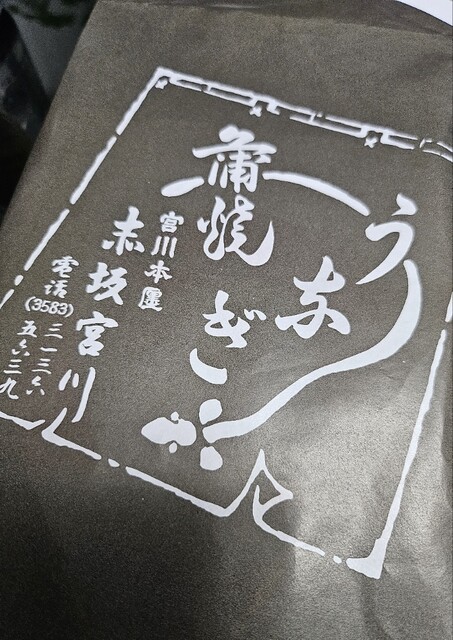 うなぎ
蒲焼
宮川本廛
赤坂宮川
電話(3583)三一三六
五六三九